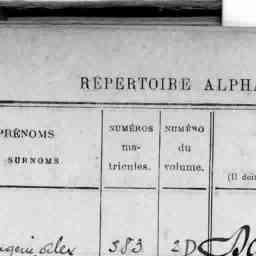 RÉPERTOIRE ALPHA
PRÉNOMS
SURNOMS
NUMÉROS
ma-
tricules.
NUMÉRO
du
volume.
(Il doi
383 2D